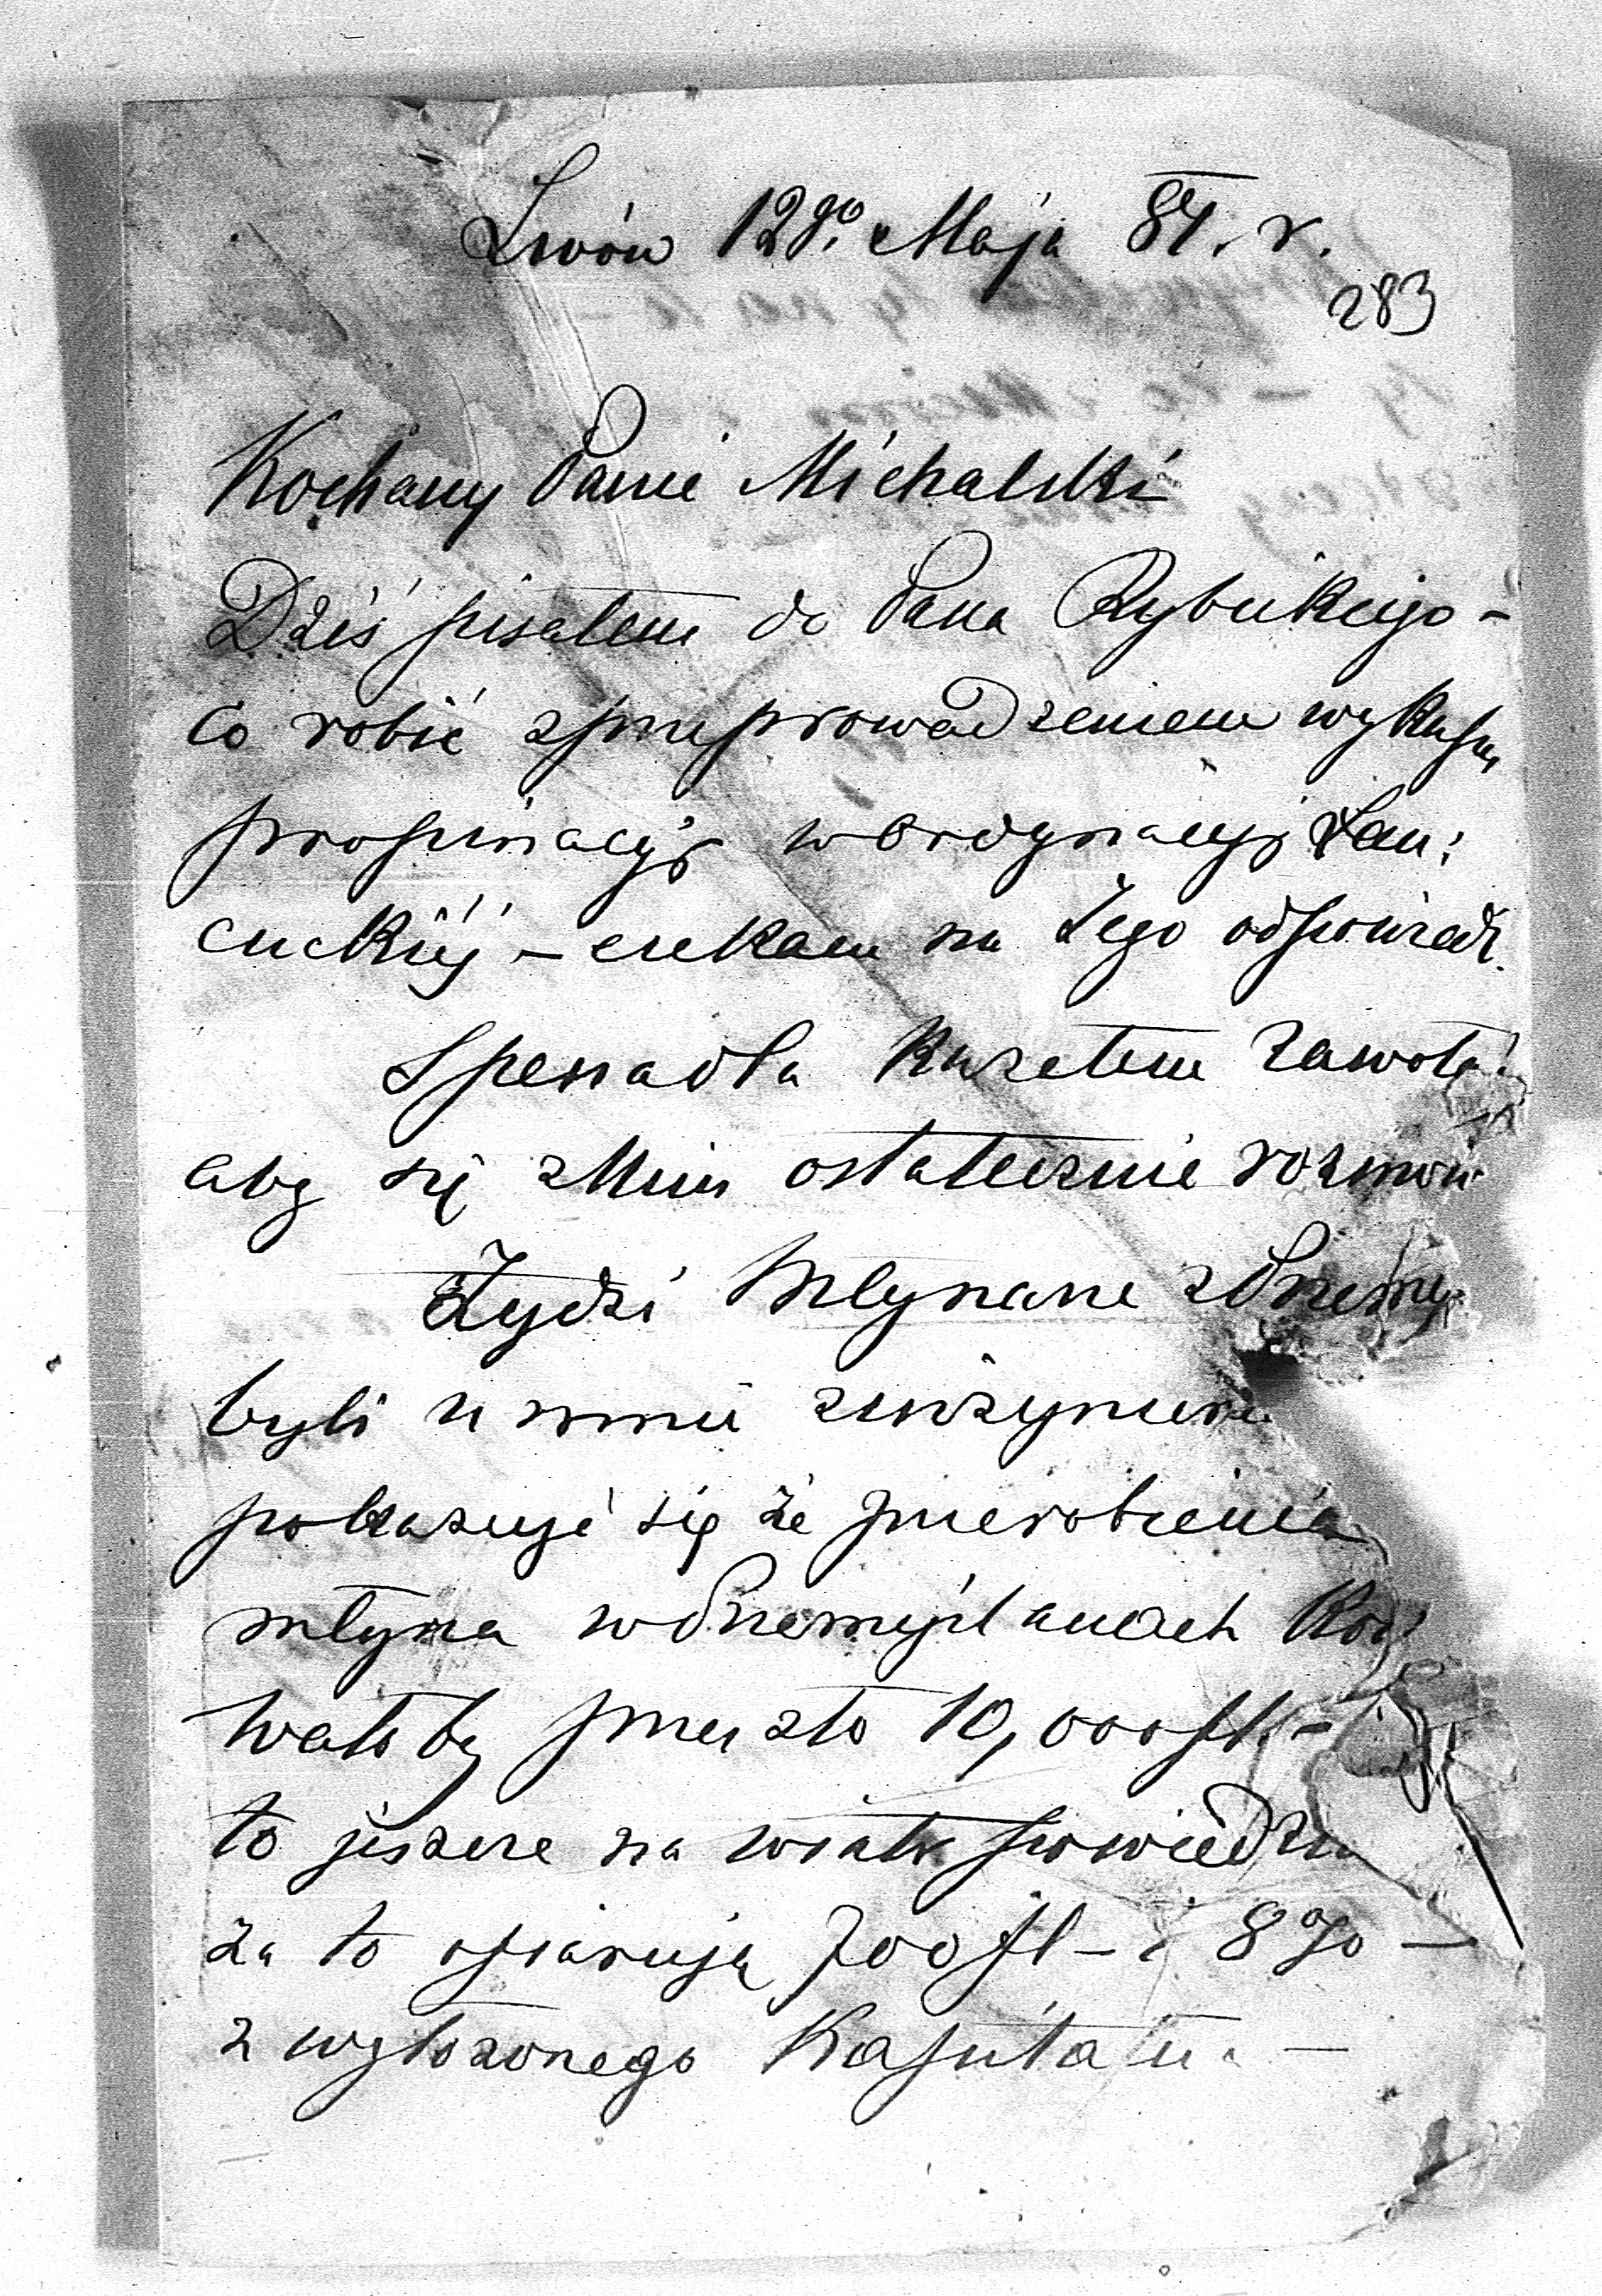 Lwów 12go. Maja 84. r.
283
Kochany Panie Michalski
Dziś pisałem do Pana Rybickiego –
co robić z przeprowadzeniem wykupu
propinacyi w Ordynacyi Łań:
cuckiéj – czekam na Jego odpowiedź.
Spenadla kazałem zawołać
aby się z Nim ostatecznie rozmówi
Żydzi Młynarze z Przemy
byli u mnie z inżynierem
pokazuje się że przerobienia
młyna w Przemyślanach kosz
wało by przeszło 10,000 fl. –
to jeszcze na wiatr powiedzia
za to ofiarują 700 fl – i 8 % –
z wyłożonego Kapitału –